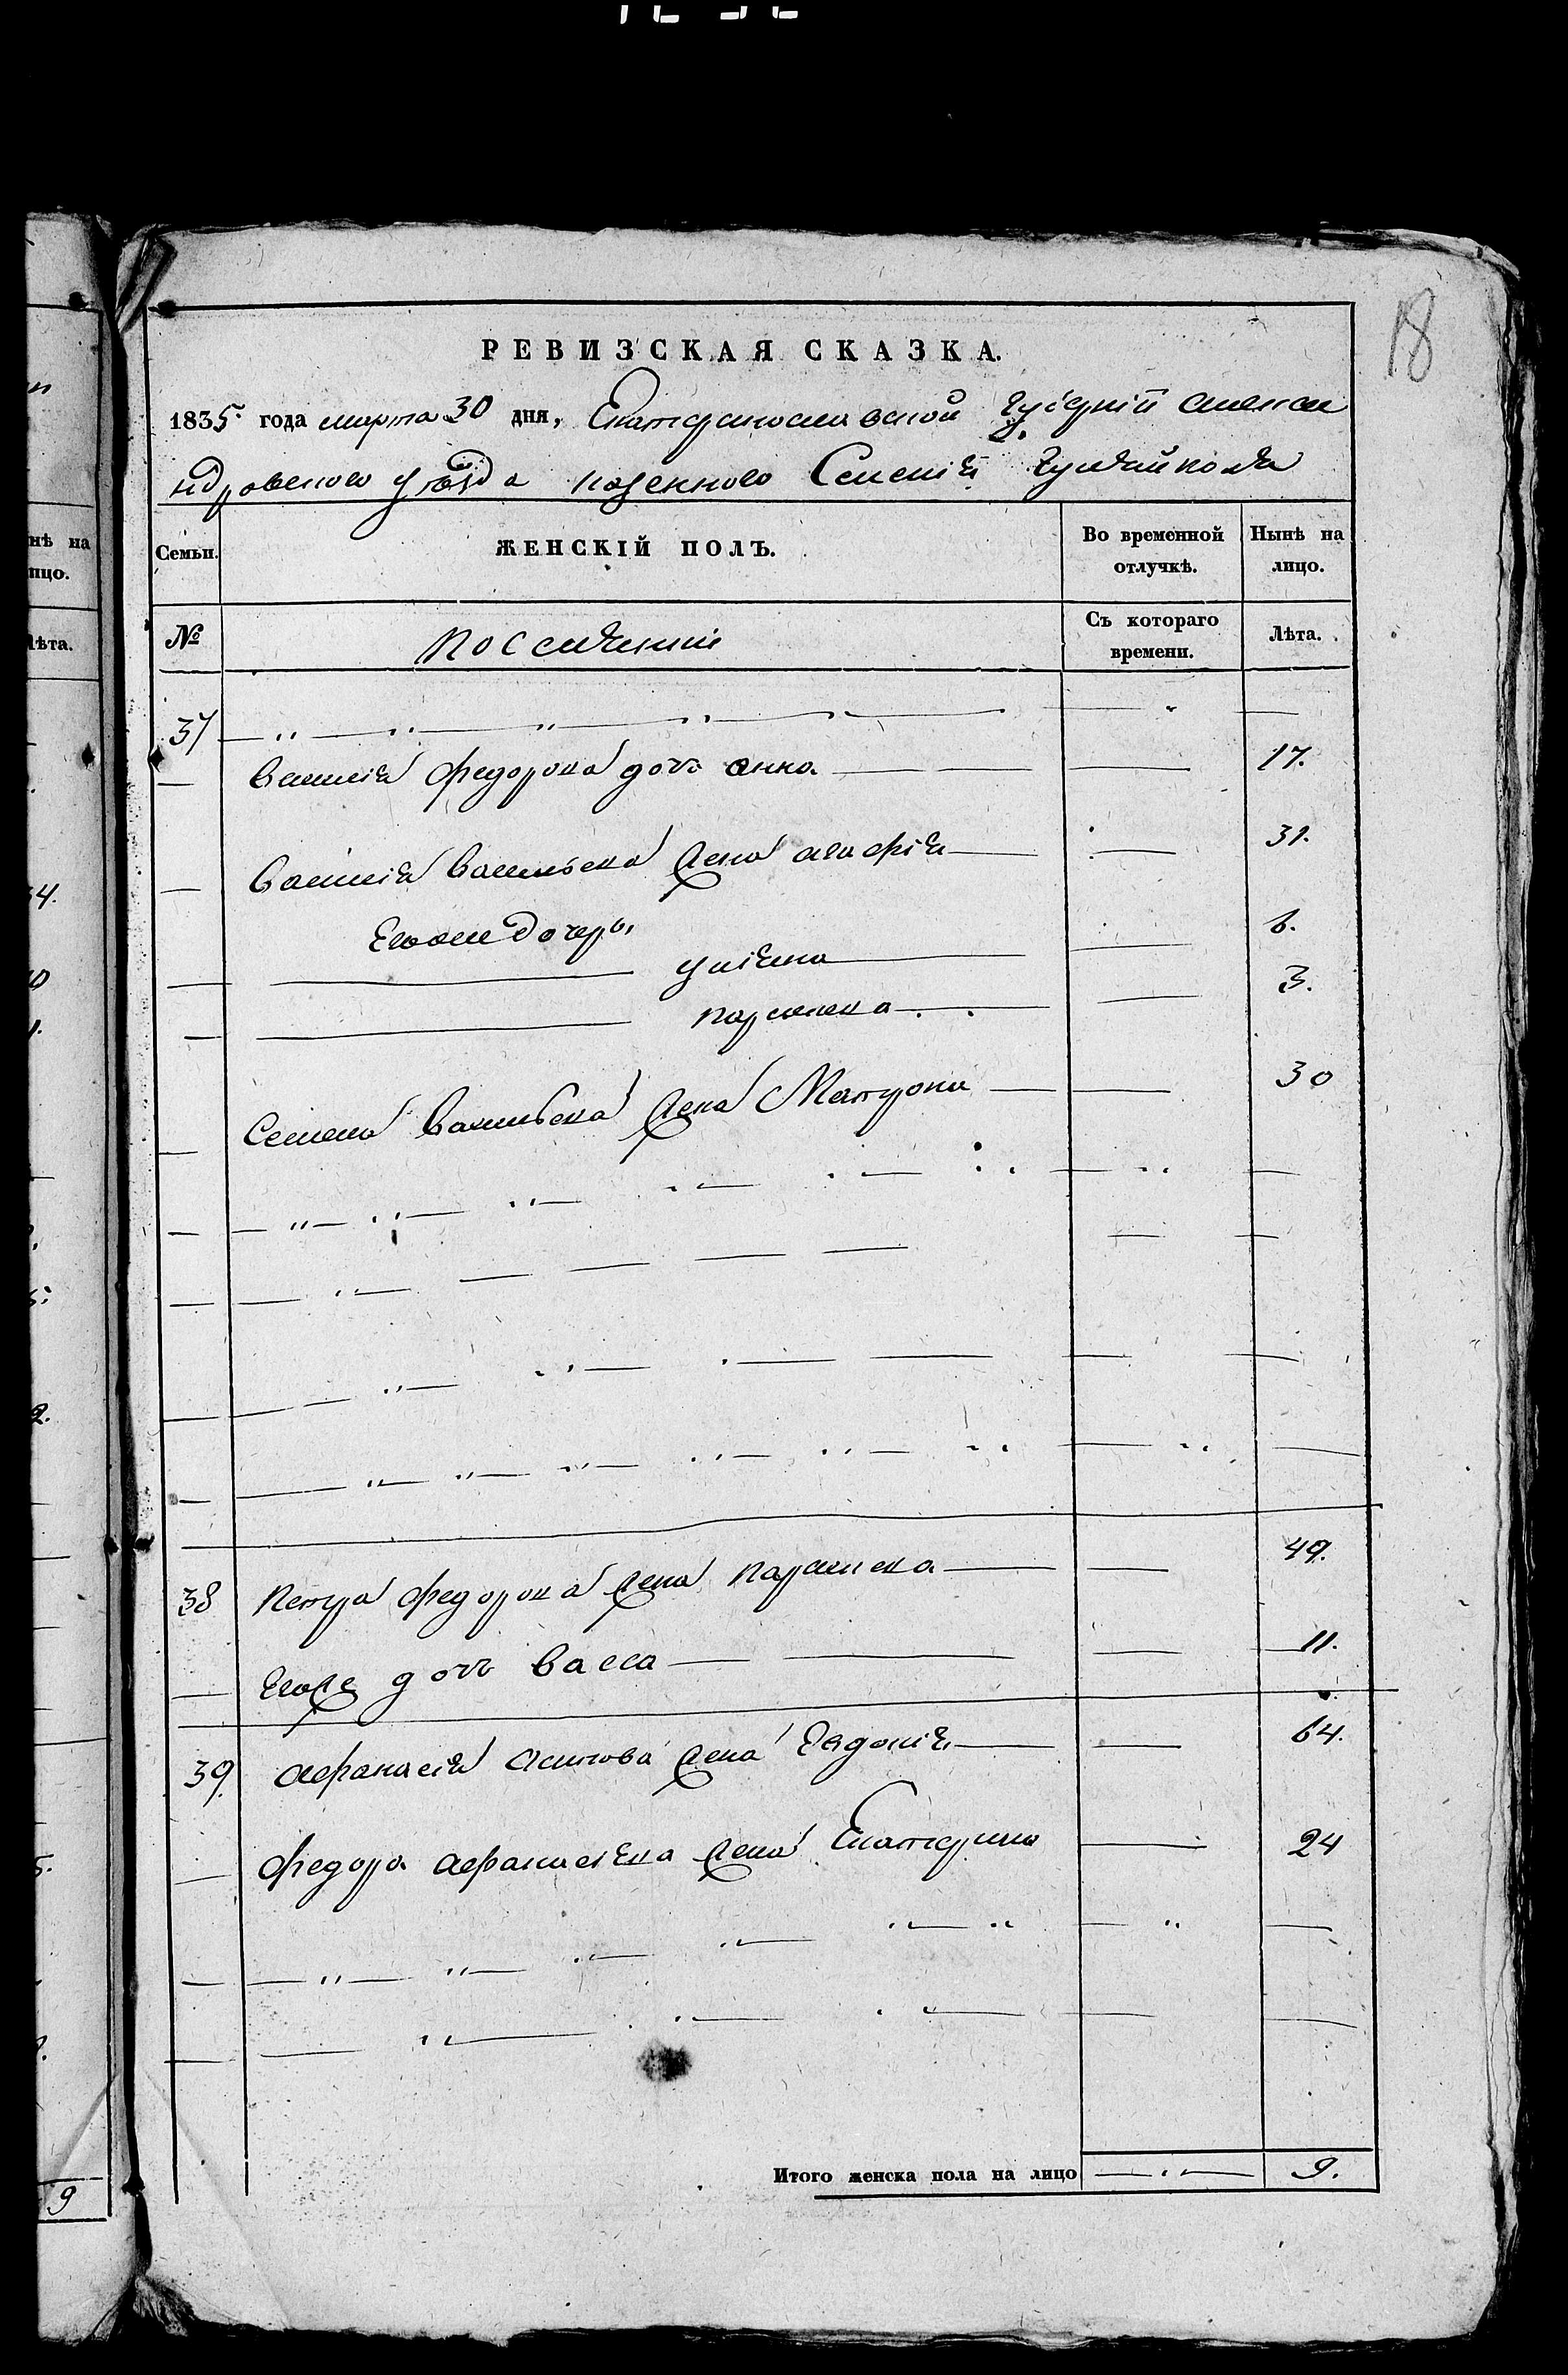 18
РЕВИЗСКАЯ СКАЗКА.
1835. года марта 30 дня, Екатеринославской Губерніи Алекса
ндровского уѣзда казенного Селенія Гуляйполя
Семьи. ЖЕНСКІЙ ПОЛЪ. Во временной отлучкѣ. Нынѣ на лицо.
№ Съ котораго времени. Лѣта.
37
Василія Федорова дочь Анна 17.
Василія Васильева жена Агафія 31.
Его же дочери
Уліяна 6.
Параскева 3.
Семена Васильева жена Матрона 30
38 Петра Федорова жена Параскева 49.
Его же дочь Васса 11.
39. Афанасія Осипова жена Евдокія 64.
Федора Афанасіева жена Екатерина 24
Итого женска пола на лицо 9.
нѣ на
лицо.
Лѣта.
9